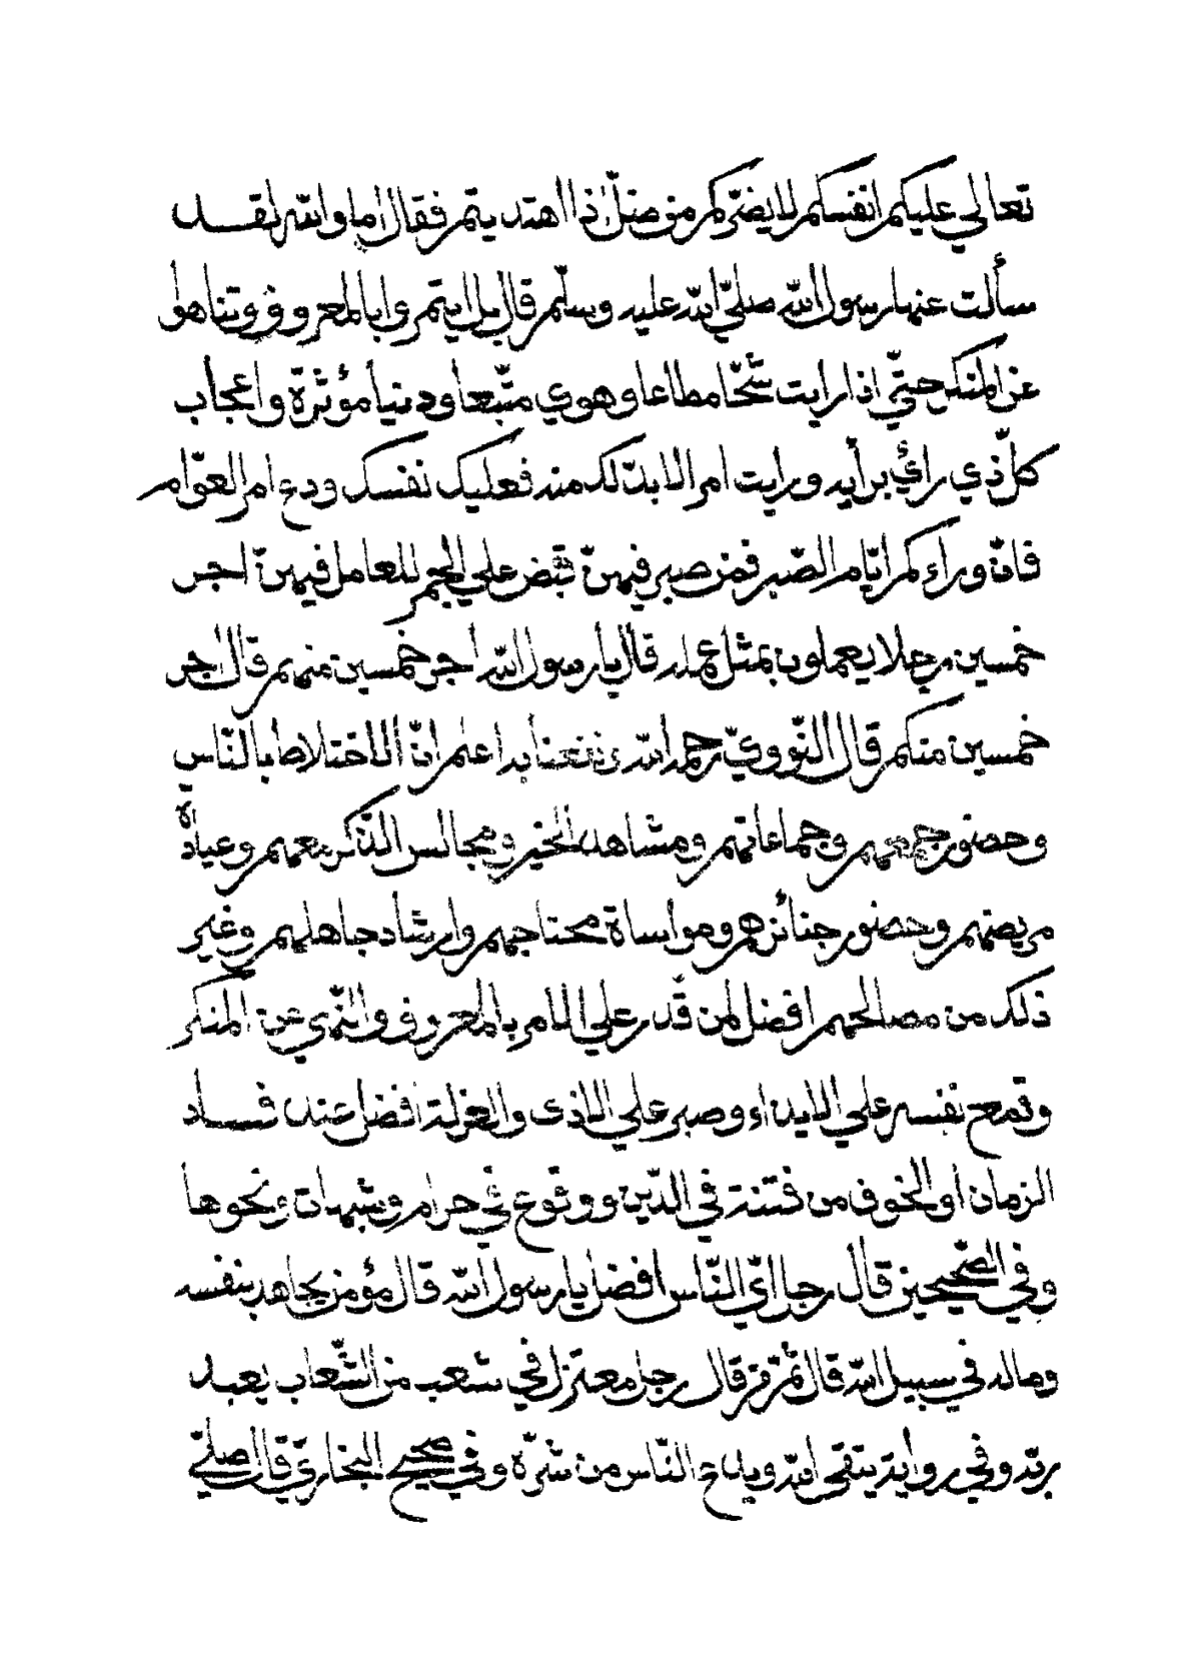 تعالي عليكم انفسكم لا يضرّكم من ضلّ اذا اهتديتم فقال اما والله لقد
سألت عنها رسول الله صلّي الله عليه وسلّم قال بل ايتمروا بالمعروف وتناهوا
عن المنكر حتّي اذا رايت شحّا مطاعا وهوي متّبعا ودنيا مؤثرة واعجاب
كلّ ذي رائ برأيه ورايت امرا لا بدّ لك منه فعليك نفسك ودع امر العوّام
فانّ وراءكم ايّام الصّبر فمن صبر فيهنّ قبض علي الجمر للعامل فيهنّ اجر
خمسين رجلا يعملون بمثل عمله قال يا رسول الله اجر خمسين منهم قال اجر
خمسين منكم قال النّوويّ رحمه الله ونفعنا به اعلم انّ الاختلاط بالنّاس
وحضور جمعهم وجماعاتهم ومشاهد الخير ومجالس الذّكر معهم وعيادة
مريضهم وحضور جنائزهم ومواساة محتاجهم وارشاد جاهلهم وغير
ذلك من مصالحهم افضل لمن قدر علي الامر بالمعروف والنّهي عن المنكر
وقمع نفسه علي الايذاء وصبر علي الاذى والعزلة افضل عند فساد
الزمان او الخوف من فتنة في الدّين ووقوع في حرام وشبهات ونحوها
وفي الصّحيحين قال رجل ايّ النّاس افضل يا رسول الله قال مؤمن يجاهد بنفسه
وماله في سبيل الله قال ثمّ من قال رجل معتزل في شعب من الشّعاب يعبد
ربّه وفي رواية يتقي الله ويدع النّاس من شرّه وفي صحيح البخاريّ قال صلّي